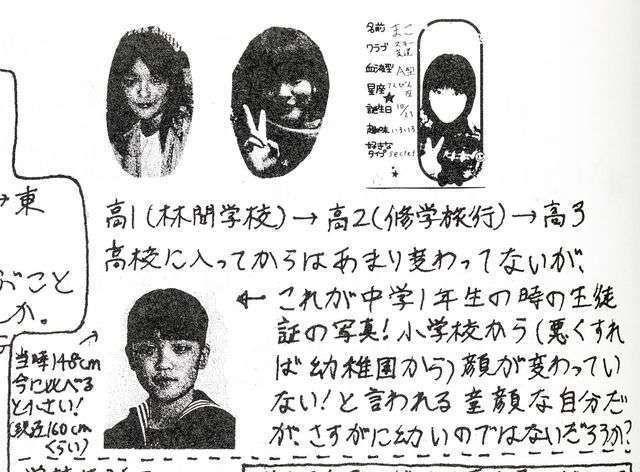 名前 まこ
クラブ スキー
血液型 A型
星座 てんびん座
誕生日 10/23
趣味 いろいろ
好きなタイプ secret
→東
高1(林間学校)→高2(修学旅行)→高3
高校に入ってからはあまり変わってないが、
こと
か。
←これが中学1年生の時の生徒
証の写真!小学校から(悪くすれ
ば幼稚園から)顔が変わってい
ない!と言われる童顔な自分だ
が、さすがに幼いのではないだろうか?
当時148cm
今に比べる
と小さい!
(現在160cm
くらい)